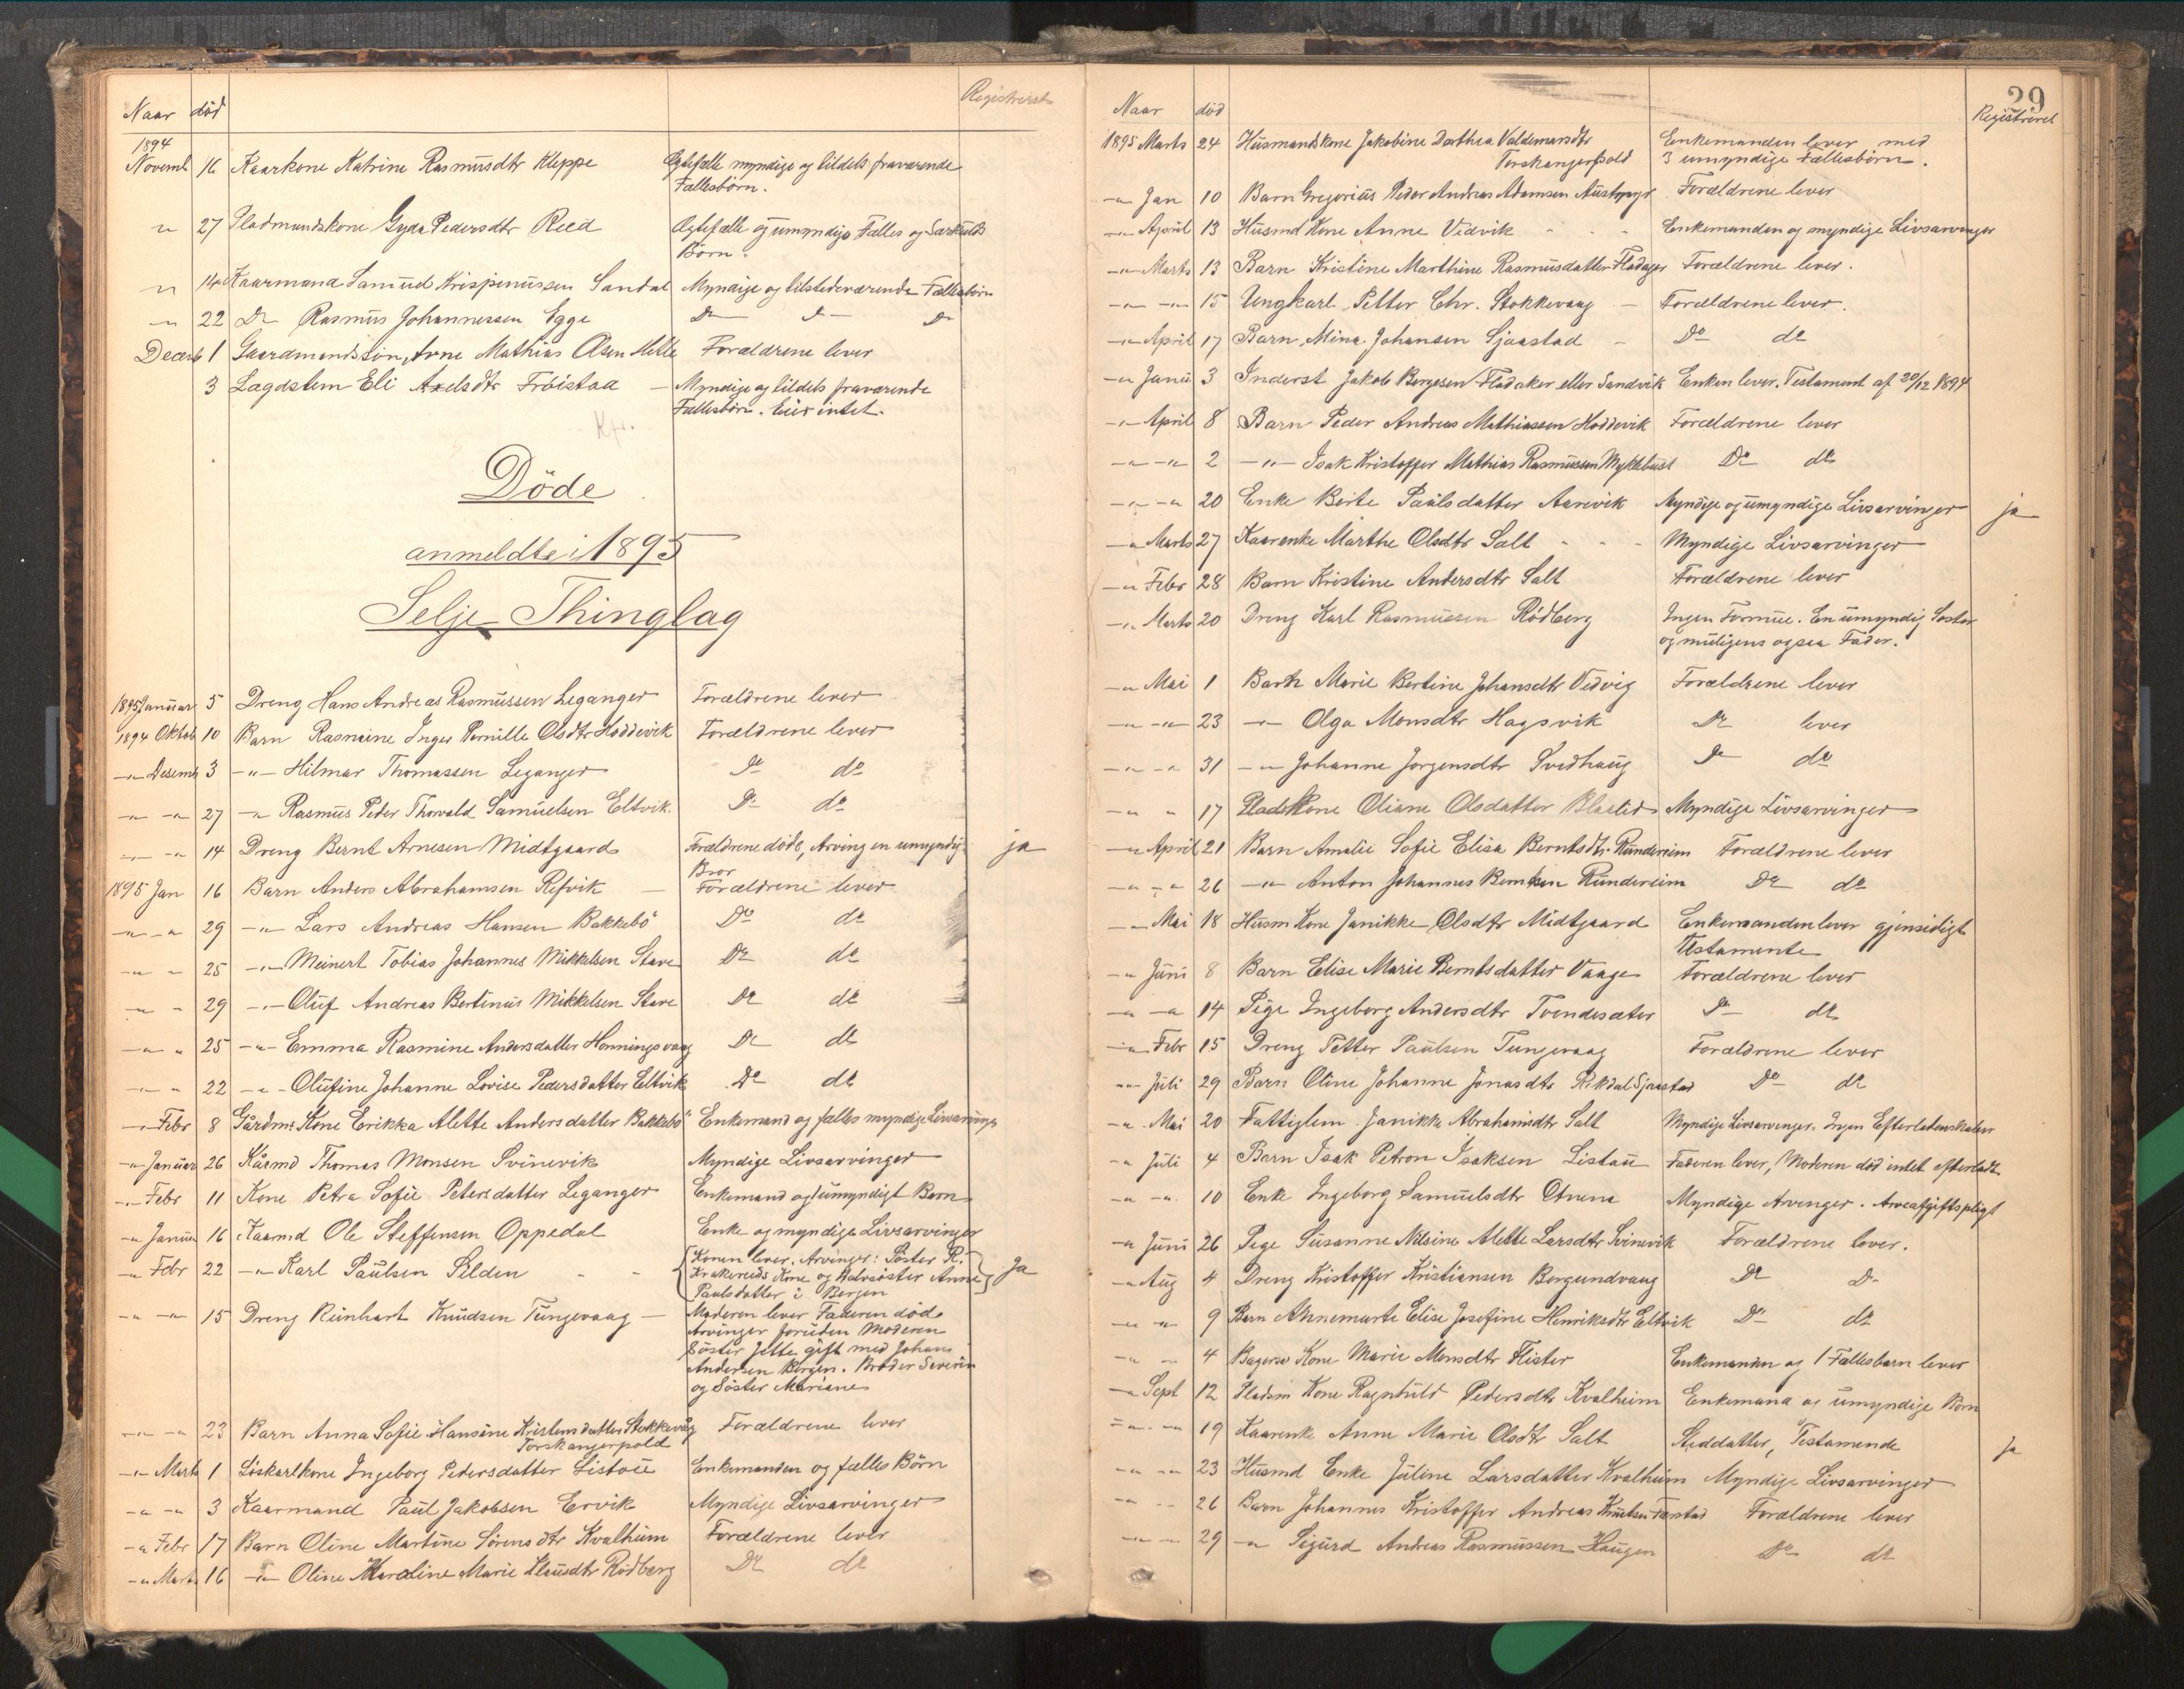 Naar død Registreret
1894
Novemb 16 Kaarkone Katrine Rasmusdtr Kleppe Egtefælle myndige og tildels fraværende
Fællesbörn.
" 27 Pladmandskone Gyda Pedersdtr Reed Egtefælle og umyndige Fælles og Særkulds
Börn.
" 14 Kaarmand Samuel Krispinussen Sandal Myndige og tilstedeværende Fællesbörn
" 22 Do Rasmus Johannessen Egge Do Do Do
Decemb 1 Gaardmandssön, Arne Mathias Olsen Melle Forældrene lever
3 Lægdslem Eli Axelsdtr Fröistad — Myndige og tildels fraværende
Fællesbörn. Eier intet.
Döde
anmeldte i 1895
Selje Thinglag
1895 Januar 5 Dreng Hans Andreas Rasmussen Leganger Forældrene lever
1894 Oktob 10 Barn Rasmine Inger Pernille Olsdtr Hoddevik Forældrene lever
—"— Desemb 3 —"— Hilmar Thomassen Leganger Do do
—"— —"— 27 —"— Rasmus Peder Thorvald Samuelsen Eltvik. Do do
—"— —"— 14 Dreng Bernt Arnesen Midtgaard Forældrene döde, Arving en umyndig ja
Bror
1895 Jan 16 Barn Anders Abrahamsen Refvik — Forældrene lever
—"— —"— 29 —"— Lars Andreas Hansen Bakkebö Do do
—"— —"— 25 —"— Meinert Tobias Johannes Mikkelsen Stave Do do
—"— " 29 —"— Oluf Andreas Bertinus Mikkelsen Stave Do do
—"— " 25 —"— Emma Rasmine Andersdatter Honningsvaag Do do
—"— " 22 —"— Olufine Johanne Lovise Pedersdatter Eltvik Do do
—"— Febr 8 Gårdm: Kone Erikka Alette Andersdatter Bakkebö Enkemand og fælles myndige Livsarvinger
—"— Januar 26 Kårmd Thomas Monsen Svinevik Myndige Livsarvinger
—"— Febr 11 Kone Petra Sofie Petersdatter Leganger Enkemand og umyndigt Barn
—"— Januar 16 Kaarmd Ole Steffensen Oppedal Enke og myndige Livsarvinger
—"— Febr 22 —"— Karl Paulsen Selden - - Konen lever. Arvinger: Söster R. Ja
Krakereids Kone og Halvsöster Anne
Paulsdatter i Bergen
—"— —"— 15 Dreng Reinhart Knudsen Tungevaag — Moderen lever Faderen död
Arvinger foruden Moderen
Söster Jette gift med Johan
Andersen Bergen. Broder Severin
og Söster Mariane
—"— —"— 23 Barn Anna Sofie Hansine Kristensdatter Stokkevåg Forældrene lever
Torskangerpold
—"— Marts 1 Löskarlkone Ingeborg Pedersdatter Listau Enkemanden og fælles Börn
—"— —"— 3 Kaarmand Paul Jakobsen Ervik Myndige Livsarvinger
—"— Febr 17 Barn Oline Martine Sörensdtr Kvalheim Forældrene lever
—"— Marts 16 —"— Oline Karoline Marie Klausdtr Rödberg Do do
29
Naar død Registreret
1895 Marts 24 Husmandskone Jakobine Dorthea Valdemarsdtr Enkemanden lever med
Torskangerpold 3 umyndige Fællesbörn.
—"— Jan 10 Barn Gregorius Peder Andreas Adamsen Forældrene lever
—"— April 13 Husmd Kone Anne Vedvik - - - Enkemanden og myndige Livsarvinger
—"— Marts 13 Barn Kristine Marthine Rasmusdatter Fladager Forældrene lever.
—"— —"— 15 Ungkarl Petter Chr. Stokkevaag — Forældrene lever.
—"— April 17 Barn Mina Johansen Sjaastad — Do do
—"— Janu 3 Inderst Jakob Börgesen Fladaker eller Sandvik Enken lever. Testament af 30/12 1894
—"— April 8 Barn Peder Andreas Mathiassen Hoddevik Forældrene lever
—"— —"— 2 —"— Isak Kristoffer Mathias Rasmussen Myklebust Do do
—"— —"— 20 Enke Berte Paulsdatter Aarevik Myndige og umyndige Livsarvinger ja
—"— Marts 27 Kaarenke Marthe Olsdtr Salt - - - Myndige Livsarvinger
—"— Febr 28 Barn Kristine Andersdtr Salt Forældrene lever
—"— Marts 20 Dreng Karl Rasmussen Rödberg Ingen Formue. En umyndig Söster
og muligens ogsaa Fader.
—"— Mai 1 Barn Marie Bertine Johansdtr Vedvig Forældrene lever
—"— —"— 23 —"— Olga Monsdtr Hagsvik Do lever
—"— —"— 31 —"— Johanne Jorgensdtr Svedhaug Do do
—"— " 17 Pladskone Oliane Olsdatter Myndige Livsarvinger
—"— April 21 Barn Amalie Sofie Elisa Berntsdtr Rundereim Forældrene lever
—"— —"— 26 —"— Anton Johannes Berntsen Rundereim Do do
—"— Mai 18 Husm Kone Janikke Olsdtr Midtgaard Enkemanden lever gjensidigt
Testamente
—"— Juni 8 Barn Elise Marie Berntsdatter Vaage Forældrene lever
—"— —"— 14 Pige Ingeborg Andersdtr Tvendesæter Do do
—"— Febr 15 Dreng Petter Paulsen Tungevaag Forældrene lever
—"— Juli 29 Barn Oline Johanne Jonasdtr Rekdal Sjaastad Do do
—"— Mai 20 Fattiglem Janikka Abrahamsdtr Salt Myndige Livsarvinger. Ingen Efterladenskaber
—"— Juli 4 Barn Isak Petron Isaksen Listau Faderen lever, Moderen död intet efterladt
—"— —"— 10 Enk Ingeborg Samuelsdtr Otnem Myndige Arvinger. Arveafgiftspligt
—"— Juni 26 Pige Susanne Nilsine Alette Larsdtr Svinevik Forældrene lever.
—"— Aug 4 Dreng Kristoffer Kristiansen Borgundvaag Do Do
—"— —"— 9 Barn Annemarte Elise Josefine Henriksdtr Eltvik Do do
—"— —"— 4 Bagers Kone Marie Monsdtr Flister Enkemanden og 1 Fællesbarn lever
—"— Sept 12 Pladsm Kone Ragnhild Pedersdtr Kvalheim Enkemand og umyndige Börn
—"— —"— 19 Kaarenke Anne Marie Olsdtr Salt Steddatter, Testamende Ja
—"— —"— 23 Husmd Enke Juline Larsdatter Kvalheim Myndige Livsarvinger
—"— —"— 26 Barn Johannes Kristoffer Andreas Knutsen Forældrene lever
—"— —"— 29 —"— Sigurd Andreas Rasmussen Haugen Do do